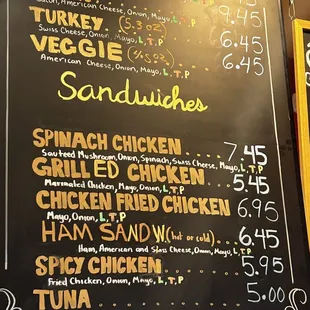 Bacon, American Cheese, Onion, Mayo, L,T,P
9.45
TURKEY (5.3oz) 6.45
Swiss Cheese, Onion, Mayo, L,T,P
VEGGIE 6.45
American Cheese, Onion, Mayo, L,T,P
Sandwiches
SPINACH CHICKEN 7.45
Sauteed Mushroom, Onion, Spinach, Swiss Cheese, Mayo, L,T,P
GRILLED CHICKEN 5.45
Marinated Chicken, Mayo, Onion, L,T,P
CHICKEN FRIED CHICKEN 6.95
Mayo, Onion, L,T,P
HAM SANDW(hot or cold) 6.45
Ham, American and Siwss Cheese, Onion, Mayo, L,T,P
SPICY CHICKEN 5.95
Fried Chicken, Onion, Mayo, L,T,P
TUNA 5.00